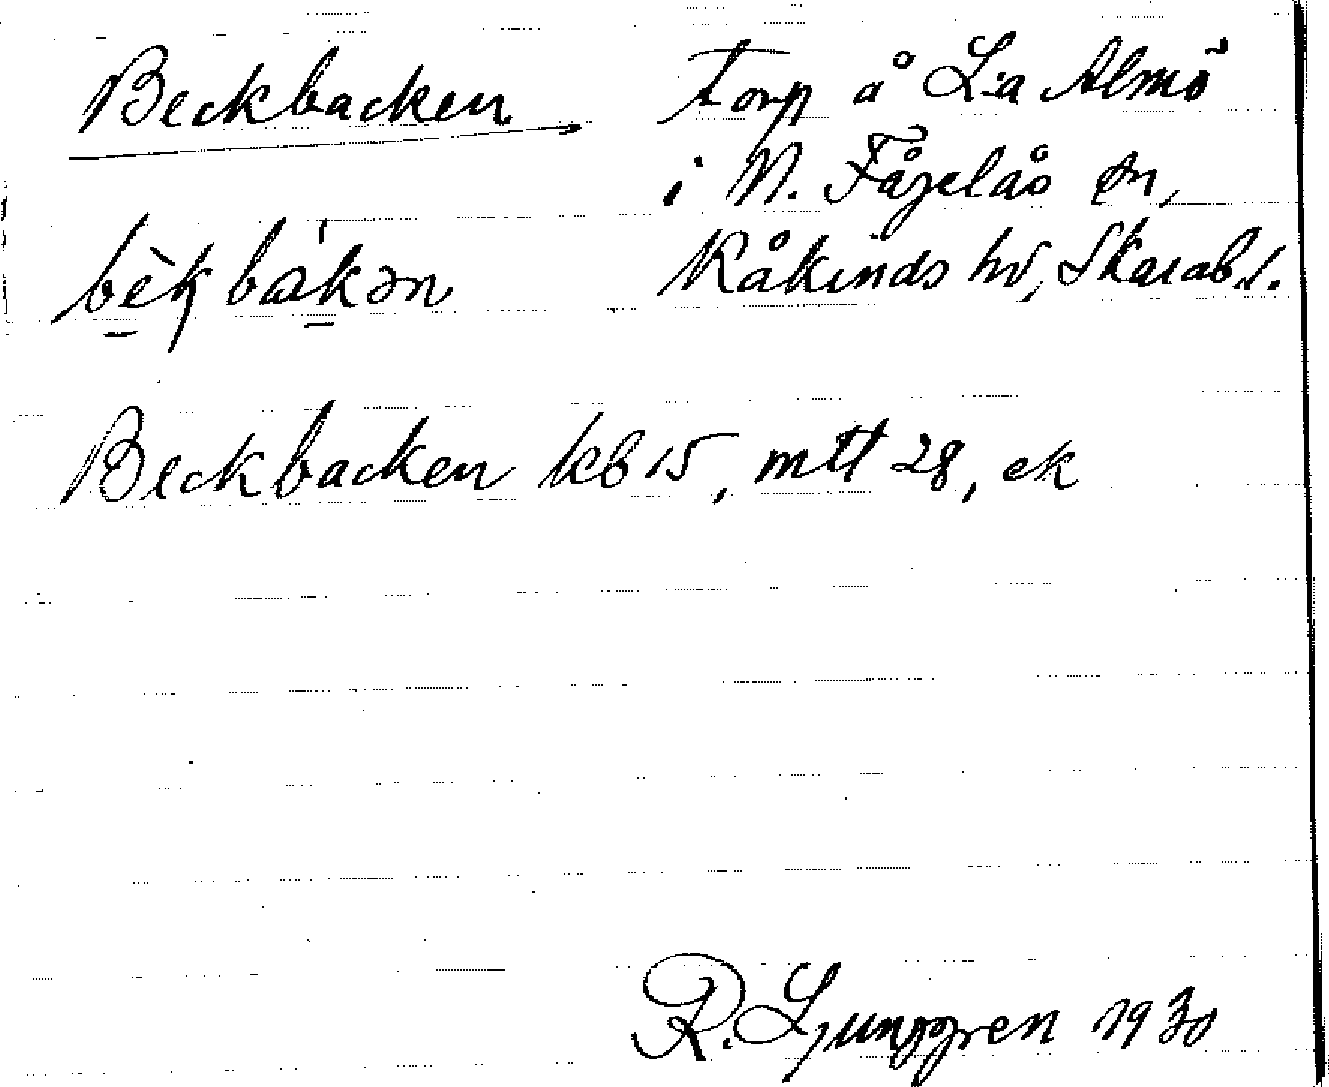 Beckbacken Torp å L:a Almö
i N. Fågelås sn,
bèkbakən Kåkinds hd, Skarab. l.
Beckbacken kb 15, mtt 28, ek
R. Ljunggren 1930